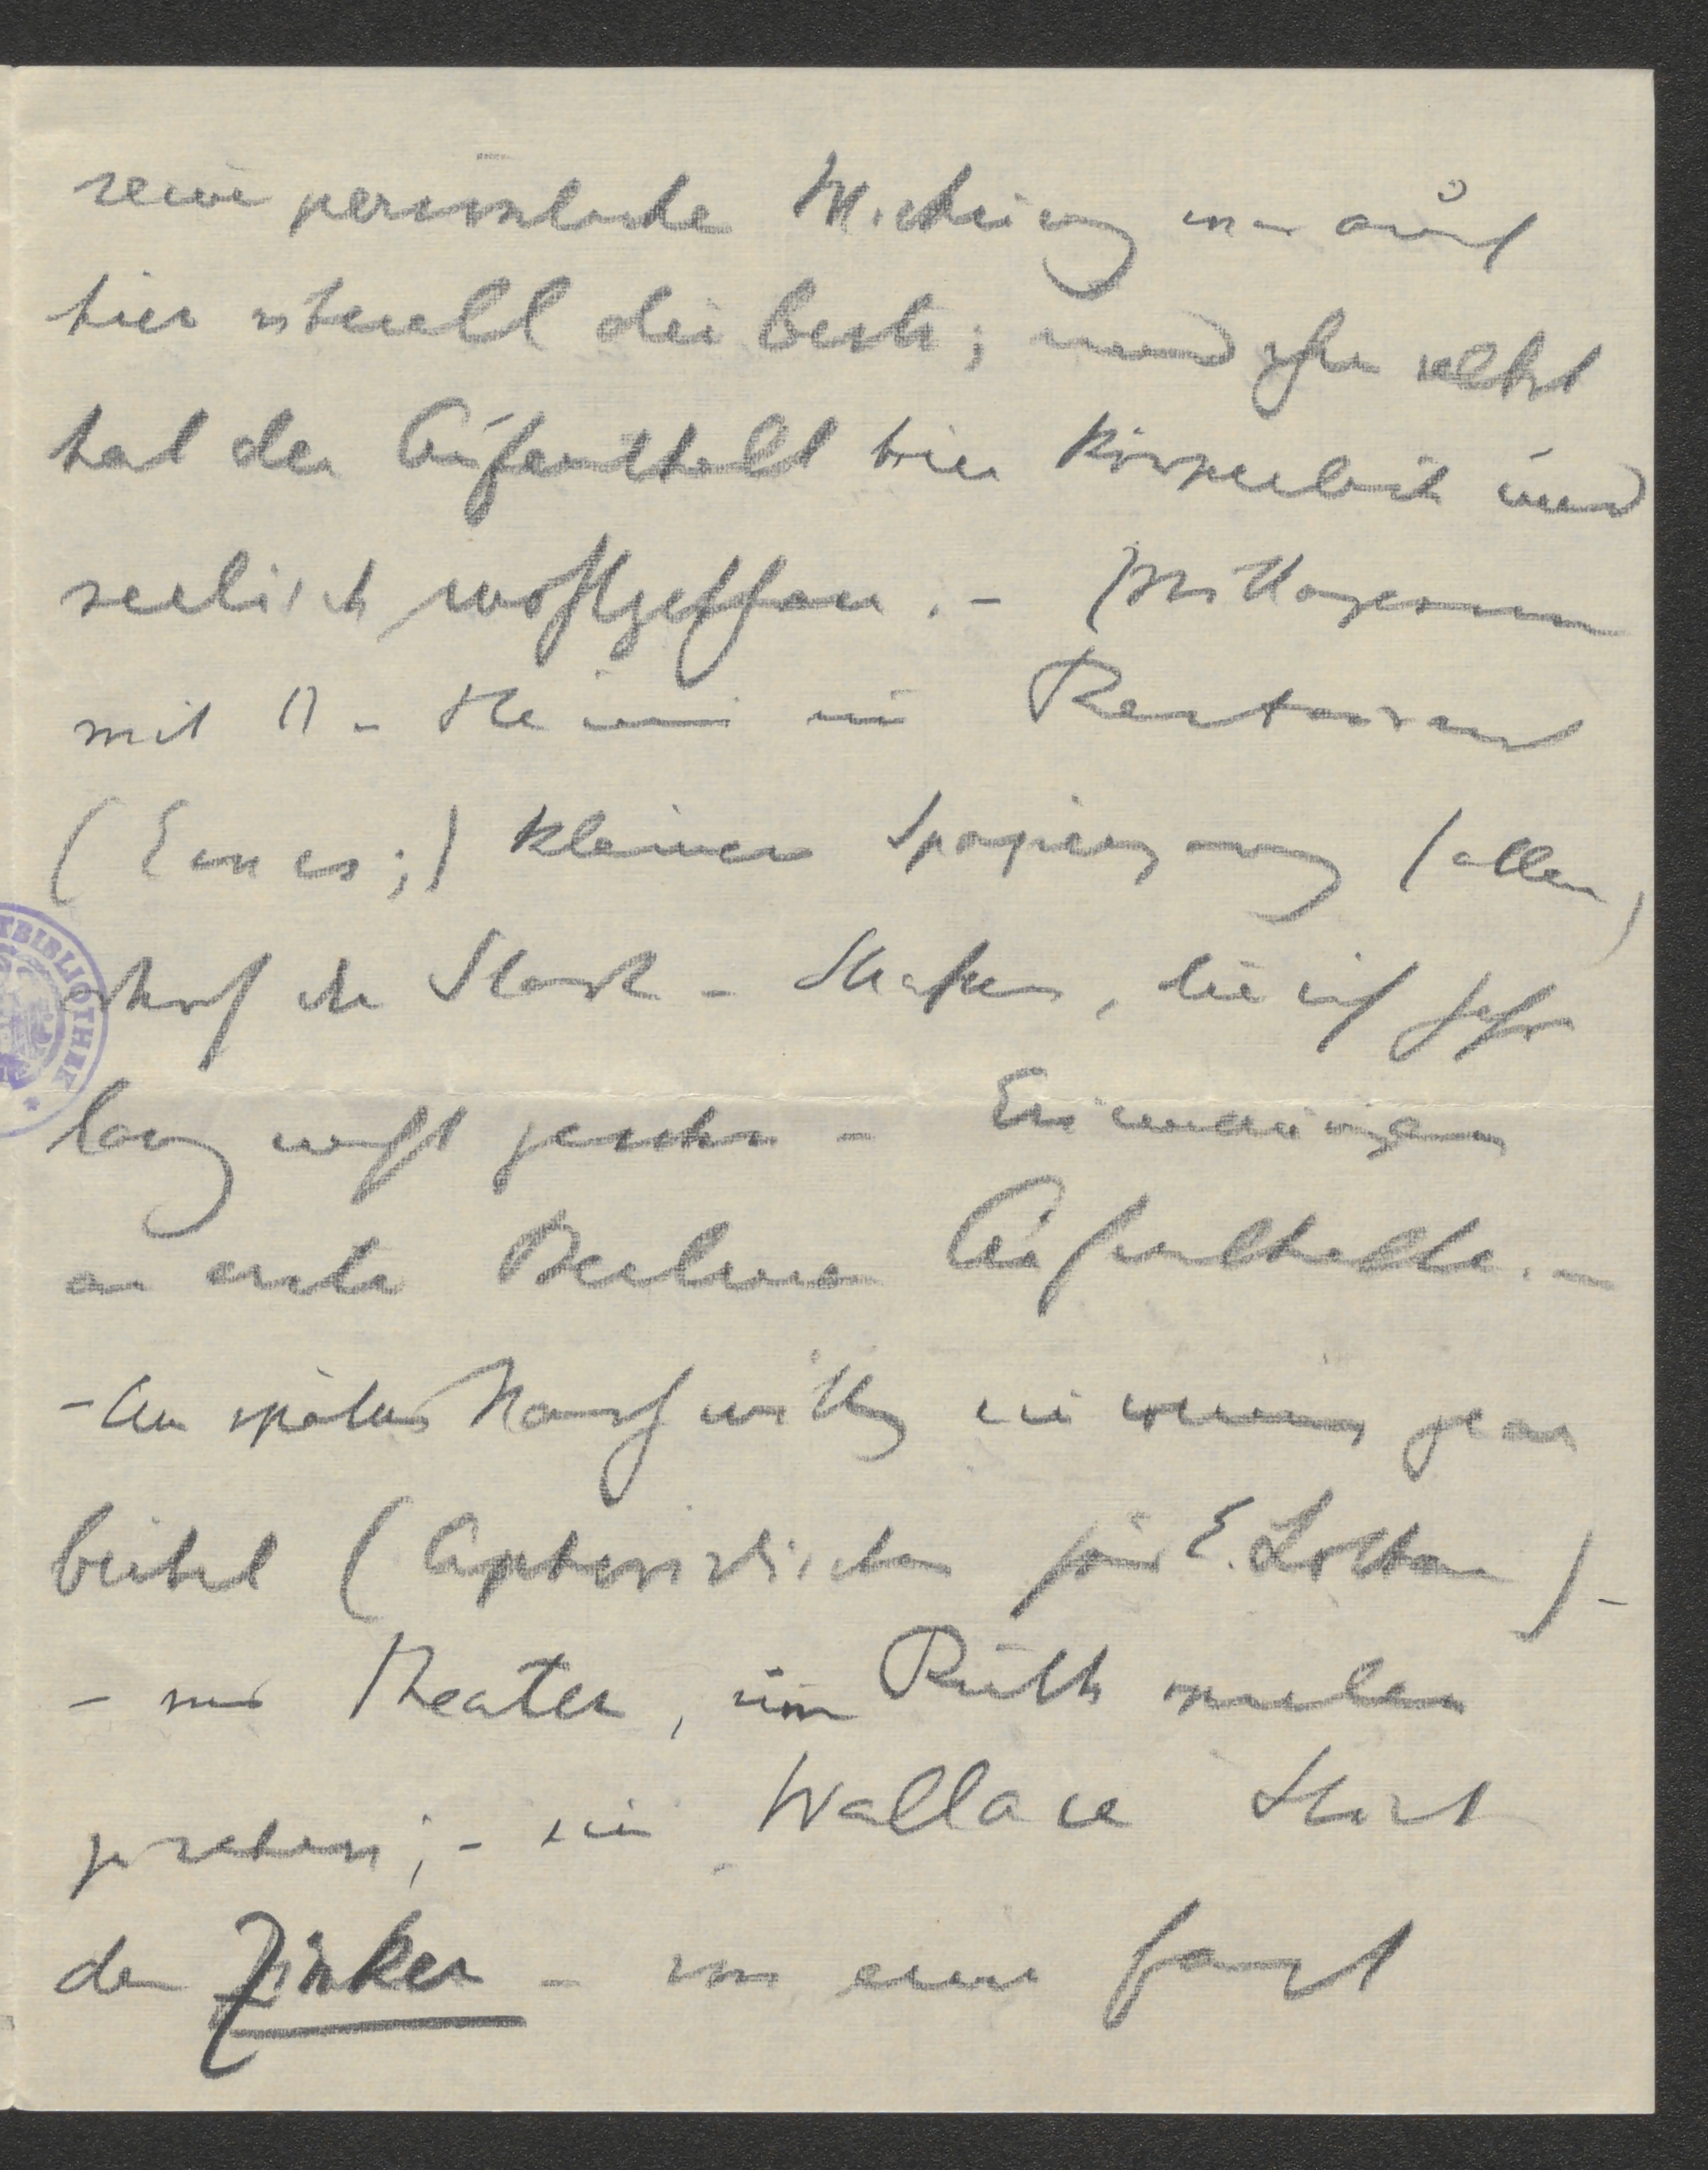 seine persönliche Wirkung war auch
hier überall die beste; und ihm selbst
hat der Aufenthalt hier körperlich und
seelisch wohlgethan. – Mittagessen
mit H. im Restaurant
(Ewest;) kleiner Spaziergang (allein)
durch die Stadt – Straßen, die ich sehr
lang nicht gesehn – Erinnerungen
an erste Berliner Aufenthalte. –
– Am späten Nachmittg ein wenig gear
beitet (Aphoristisches für E. Lothar) –
– ins Theater, um Ruth spielen
zu sehen; – ein Wallace Stück
der Zinker – von einer fast
TBIBLIOTHEK